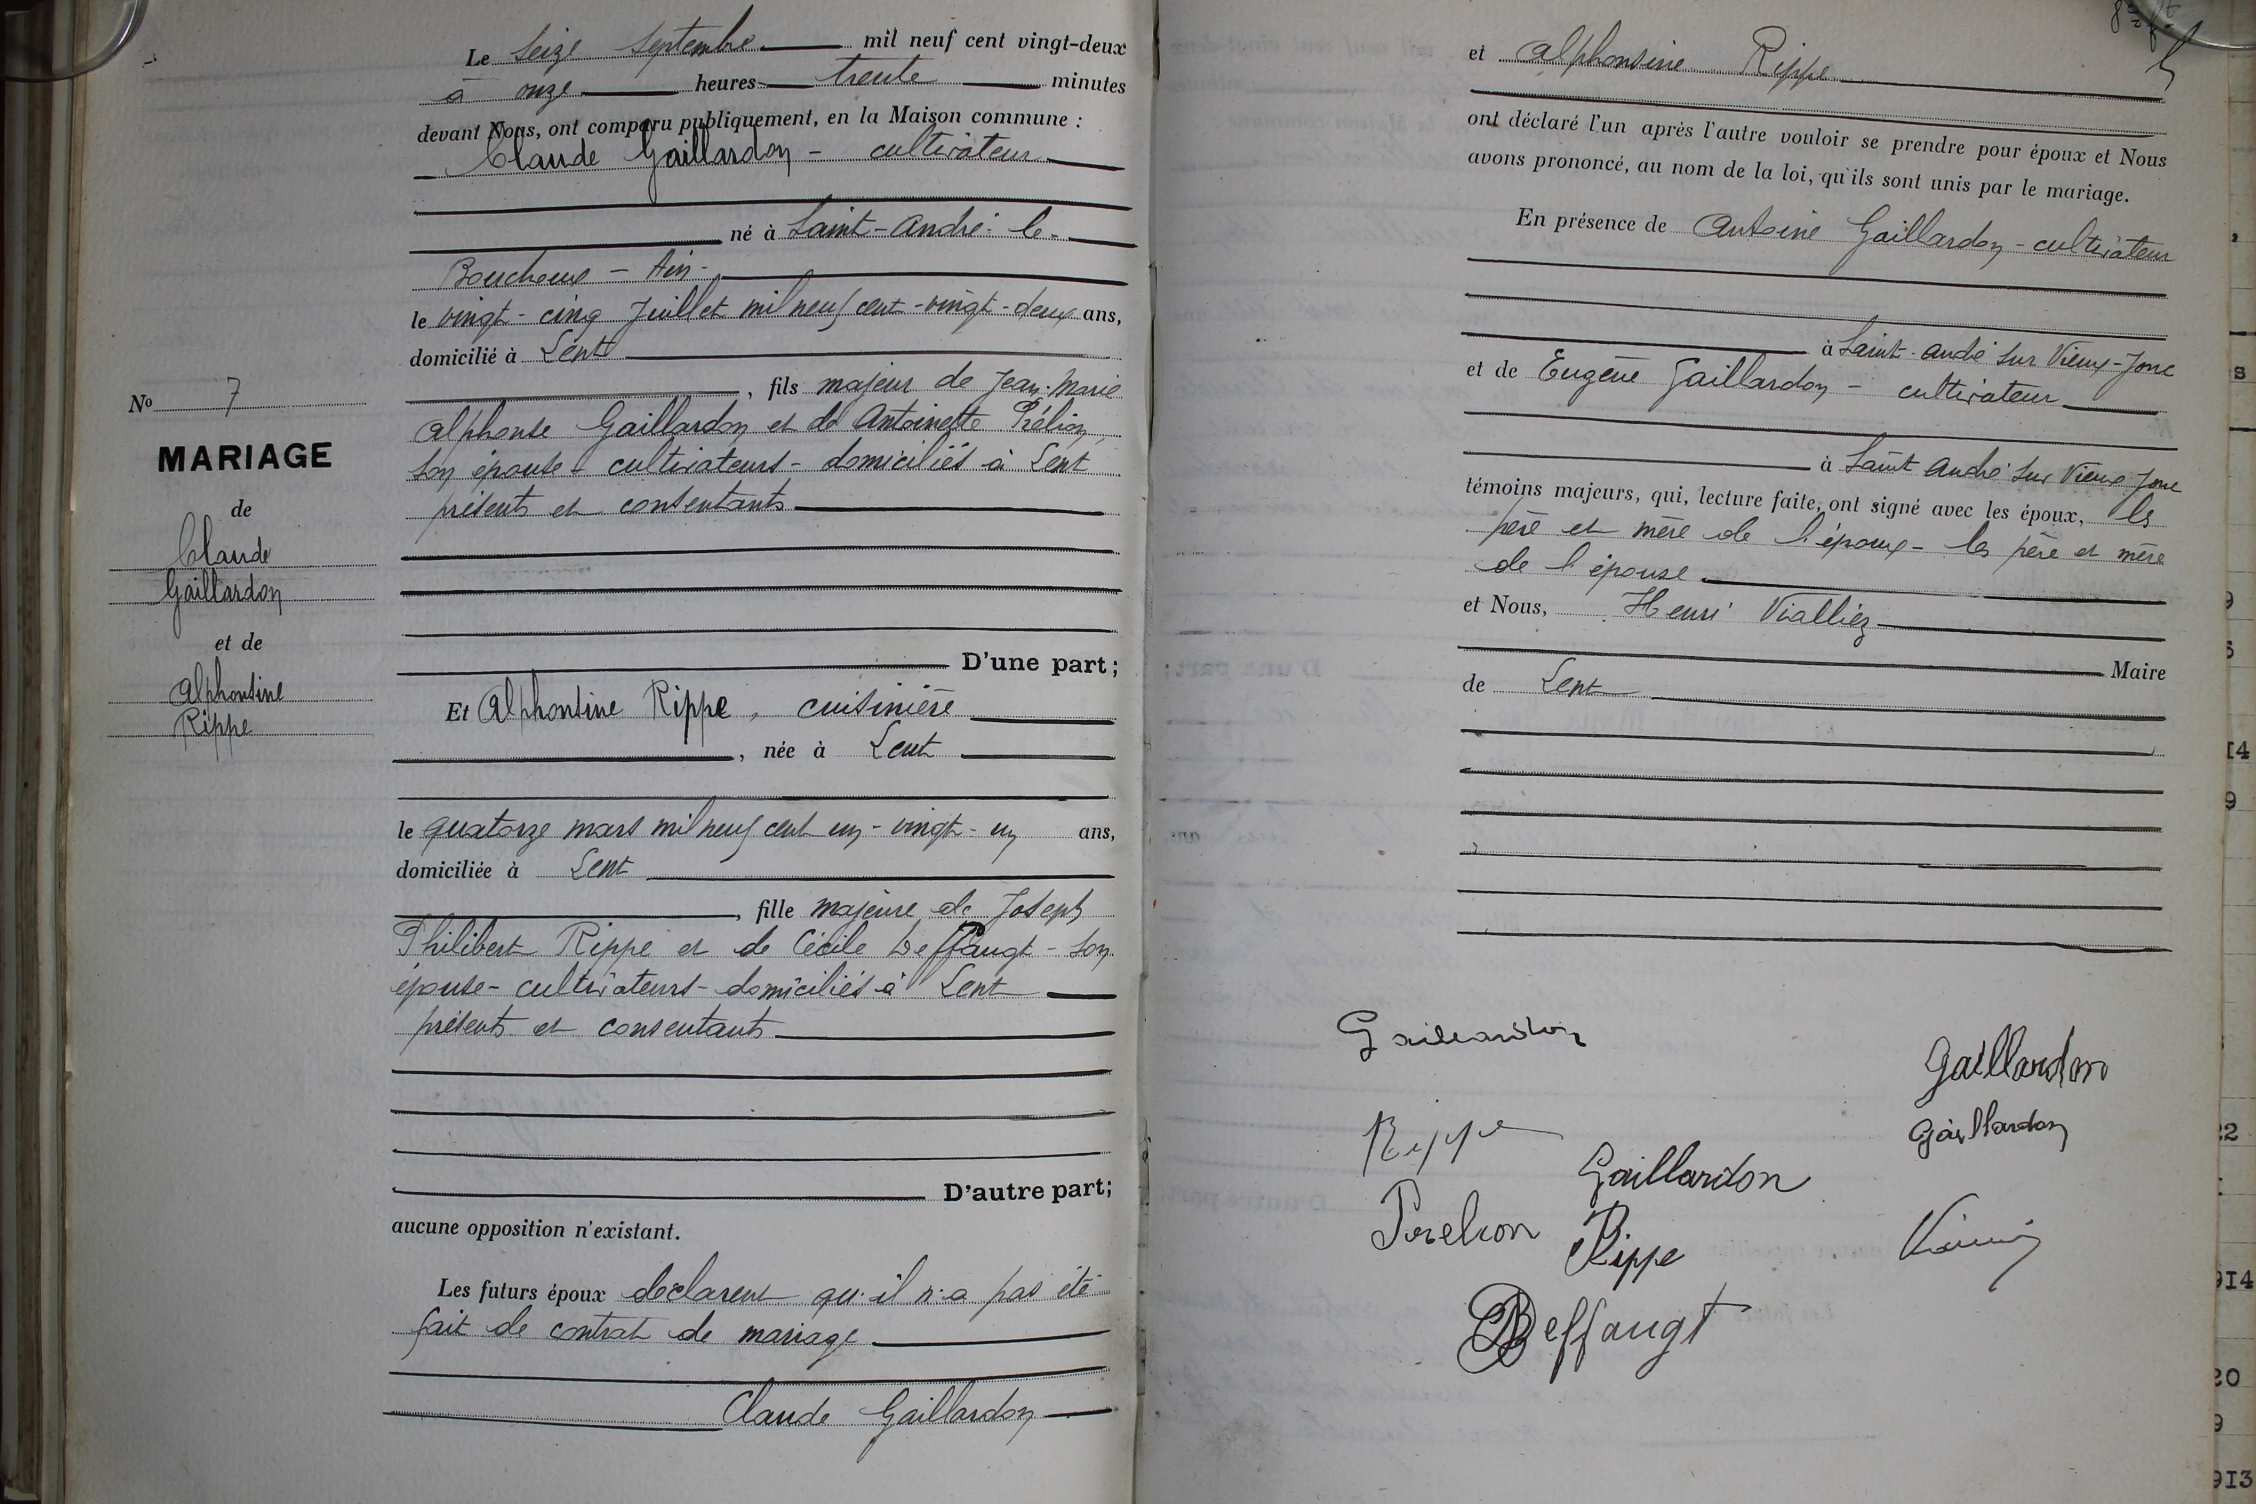 Le seize Septembre mil neuf cent vingt-deux
à onze heures trente minutes
devant Nous, ont comparu publiquement, en la Maison commune :
Claude Gaillardon - cultivateur
né à Saint-André-le-
Bouchoux - Ain -
le vingt-cinq Juillet mil neuf cent - vingt-deux ans,
domicilié à Lent
, fils majeur de Jean-Marie
Alphonse Gaillardon et de Antoinette Prélion,
son épouse - cultivateurs - domiciliés à Lent
présents et consentants
No 7
MARIAGE
de
Claude
Gaillardon
et de
Alphonsine
Rippe
D'une part;
Et Alphonsine Rippe, cuisinière
, née à Lent
le quatorze mars mil neuf cent un - vingt-un ans,
domiciliée à Lent
, fille majeure de Joseph
Philibert Rippe et de Cécile Beffaugt - son
épouse - cultivateurs - domiciliés à Lent
présents et consentants
D'autre part;
aucune opposition n'existant.
Les futurs époux déclarent qu'il n'a pas été
fait de contrat de mariage
Claude Gaillardon
et Alphonsine Rippe
ont déclaré l'un après l'autre vouloir se prendre pour époux et Nous
avons prononcé, au nom de la loi, qu'ils sont unis par le mariage.
En présence de Antoine Gaillardon - cultivateur
à Saint-André sur Vieux-Jonc
et de Eugène Gaillardon - cultivateur
à Saint André sur Vieux Jonc
témoins majeurs, qui, lecture faite, ont signé avec les époux, les
père et mère de l'époux - les père et mère
de l'épouse
et Nous, Henri Vialliez
Maire
de Lent
Gaillardon
Gaillardon
Rippe
Gaillardon
Gaillardon
Prelion
Rippe
Beffaugt